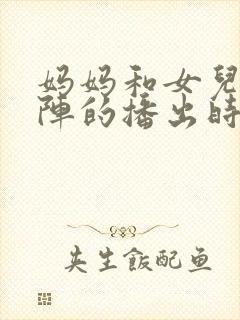 妈妈和女兒
陣的播出時
夹生飯配鱼